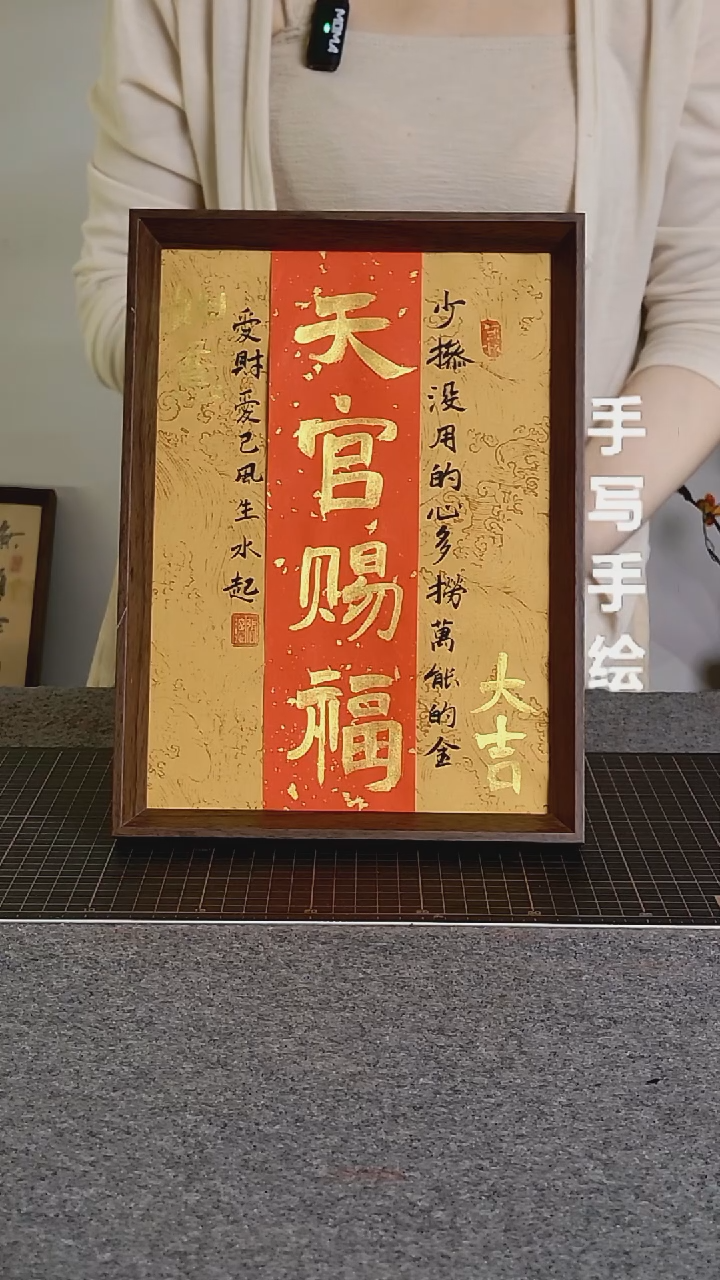 少操没用的心多撈萬能的金
大吉
天官赐福
愛財愛己风生水起
手写手绘
MOMA